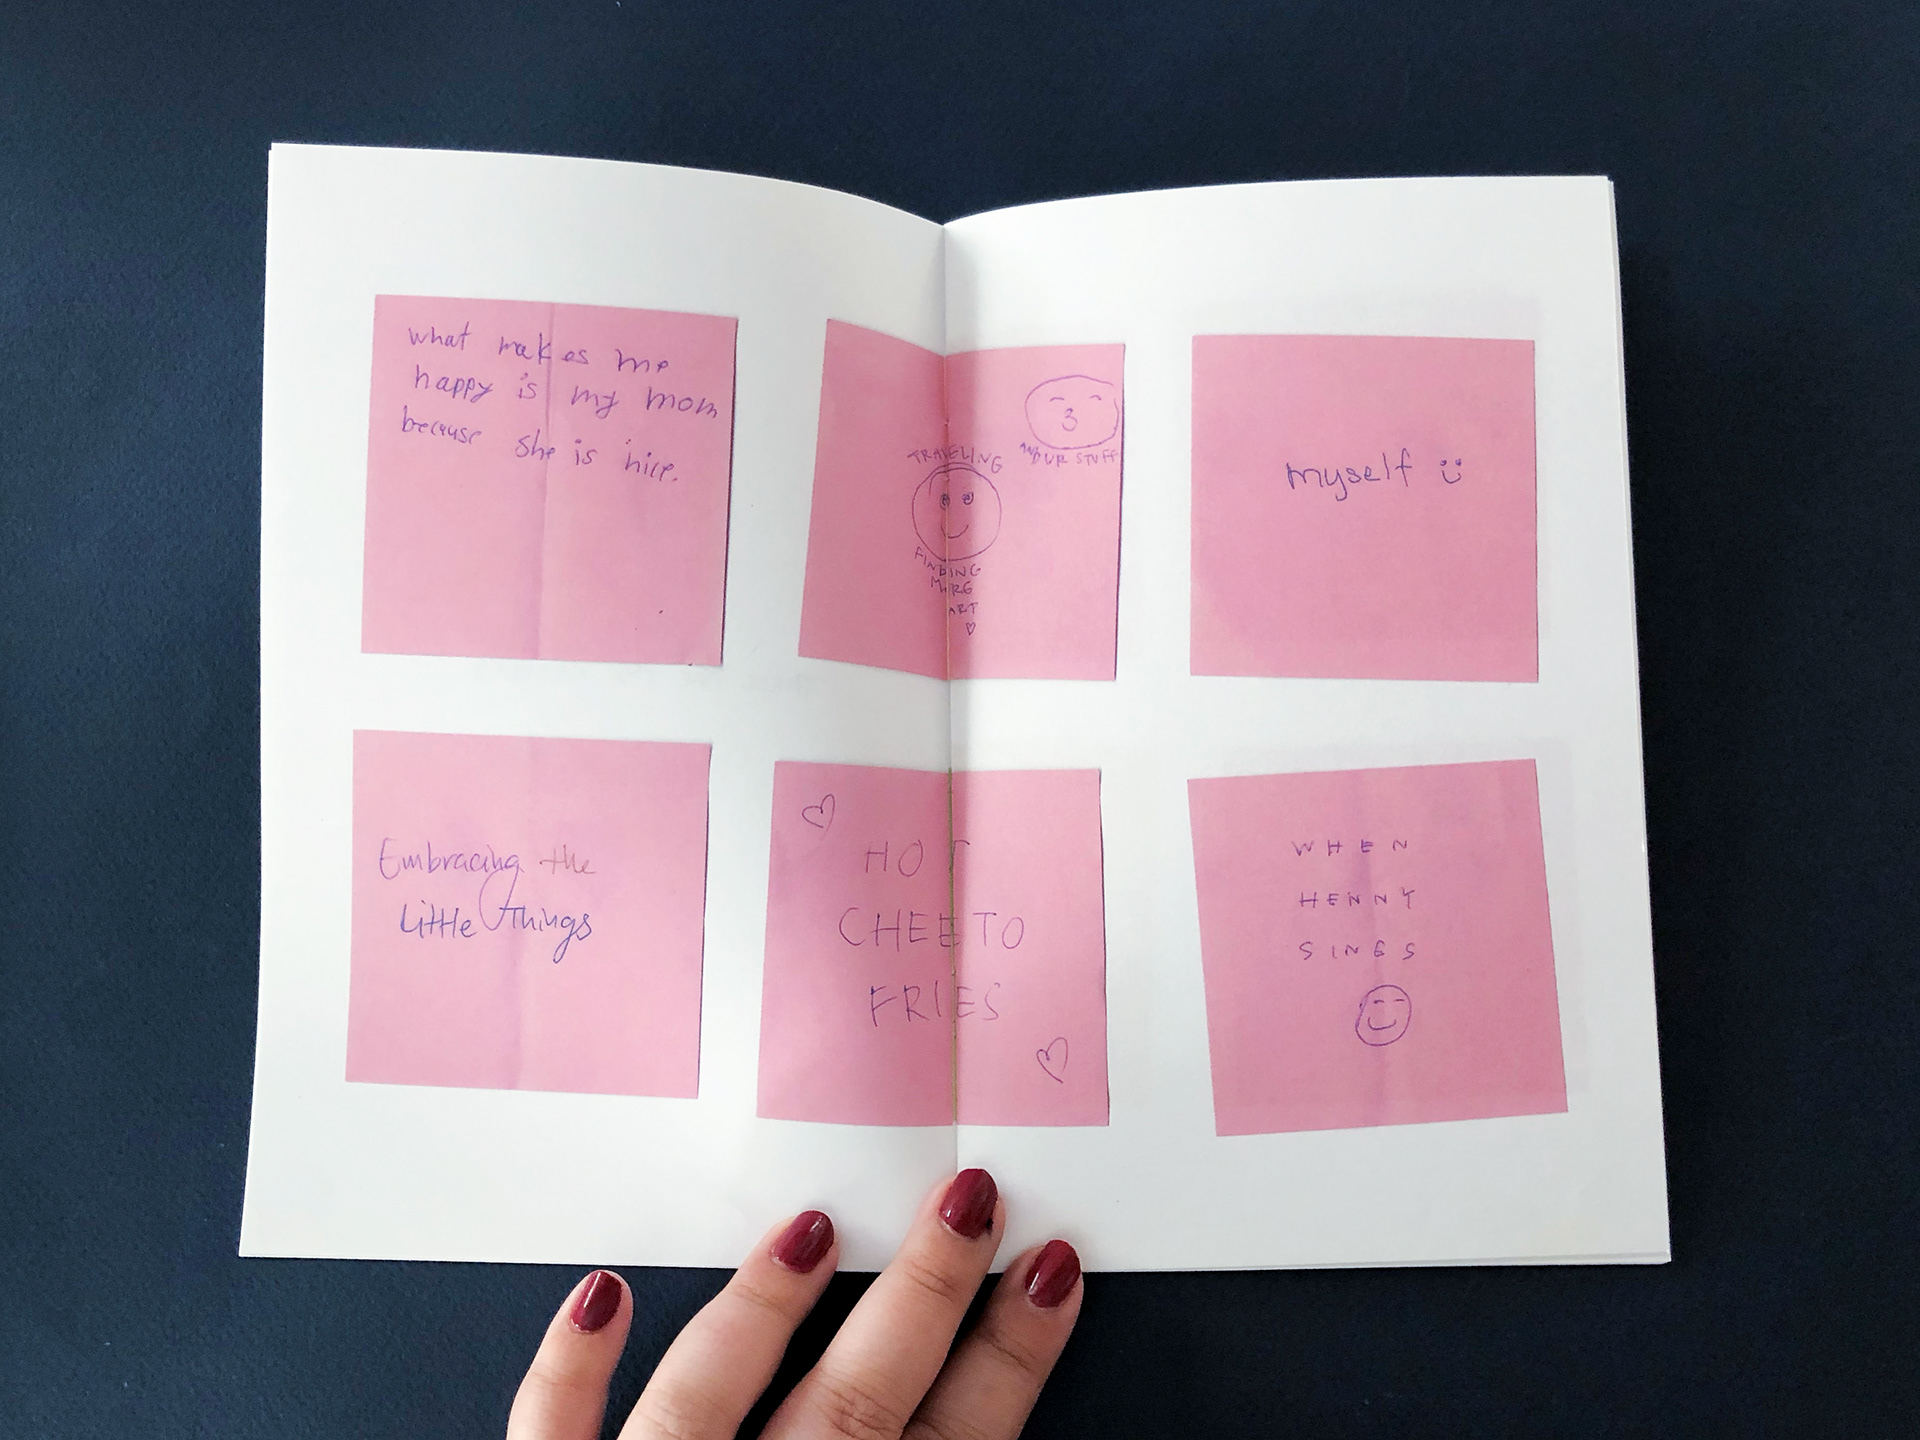 what makes me
happy is my mom
because she is nice.
TRAVELING
FINDING
MORE
ART
OUR STUFF
myself
Embracing the
Little Things
HOT
CHEETO
FRIES
WHEN
HENNY
SINGS